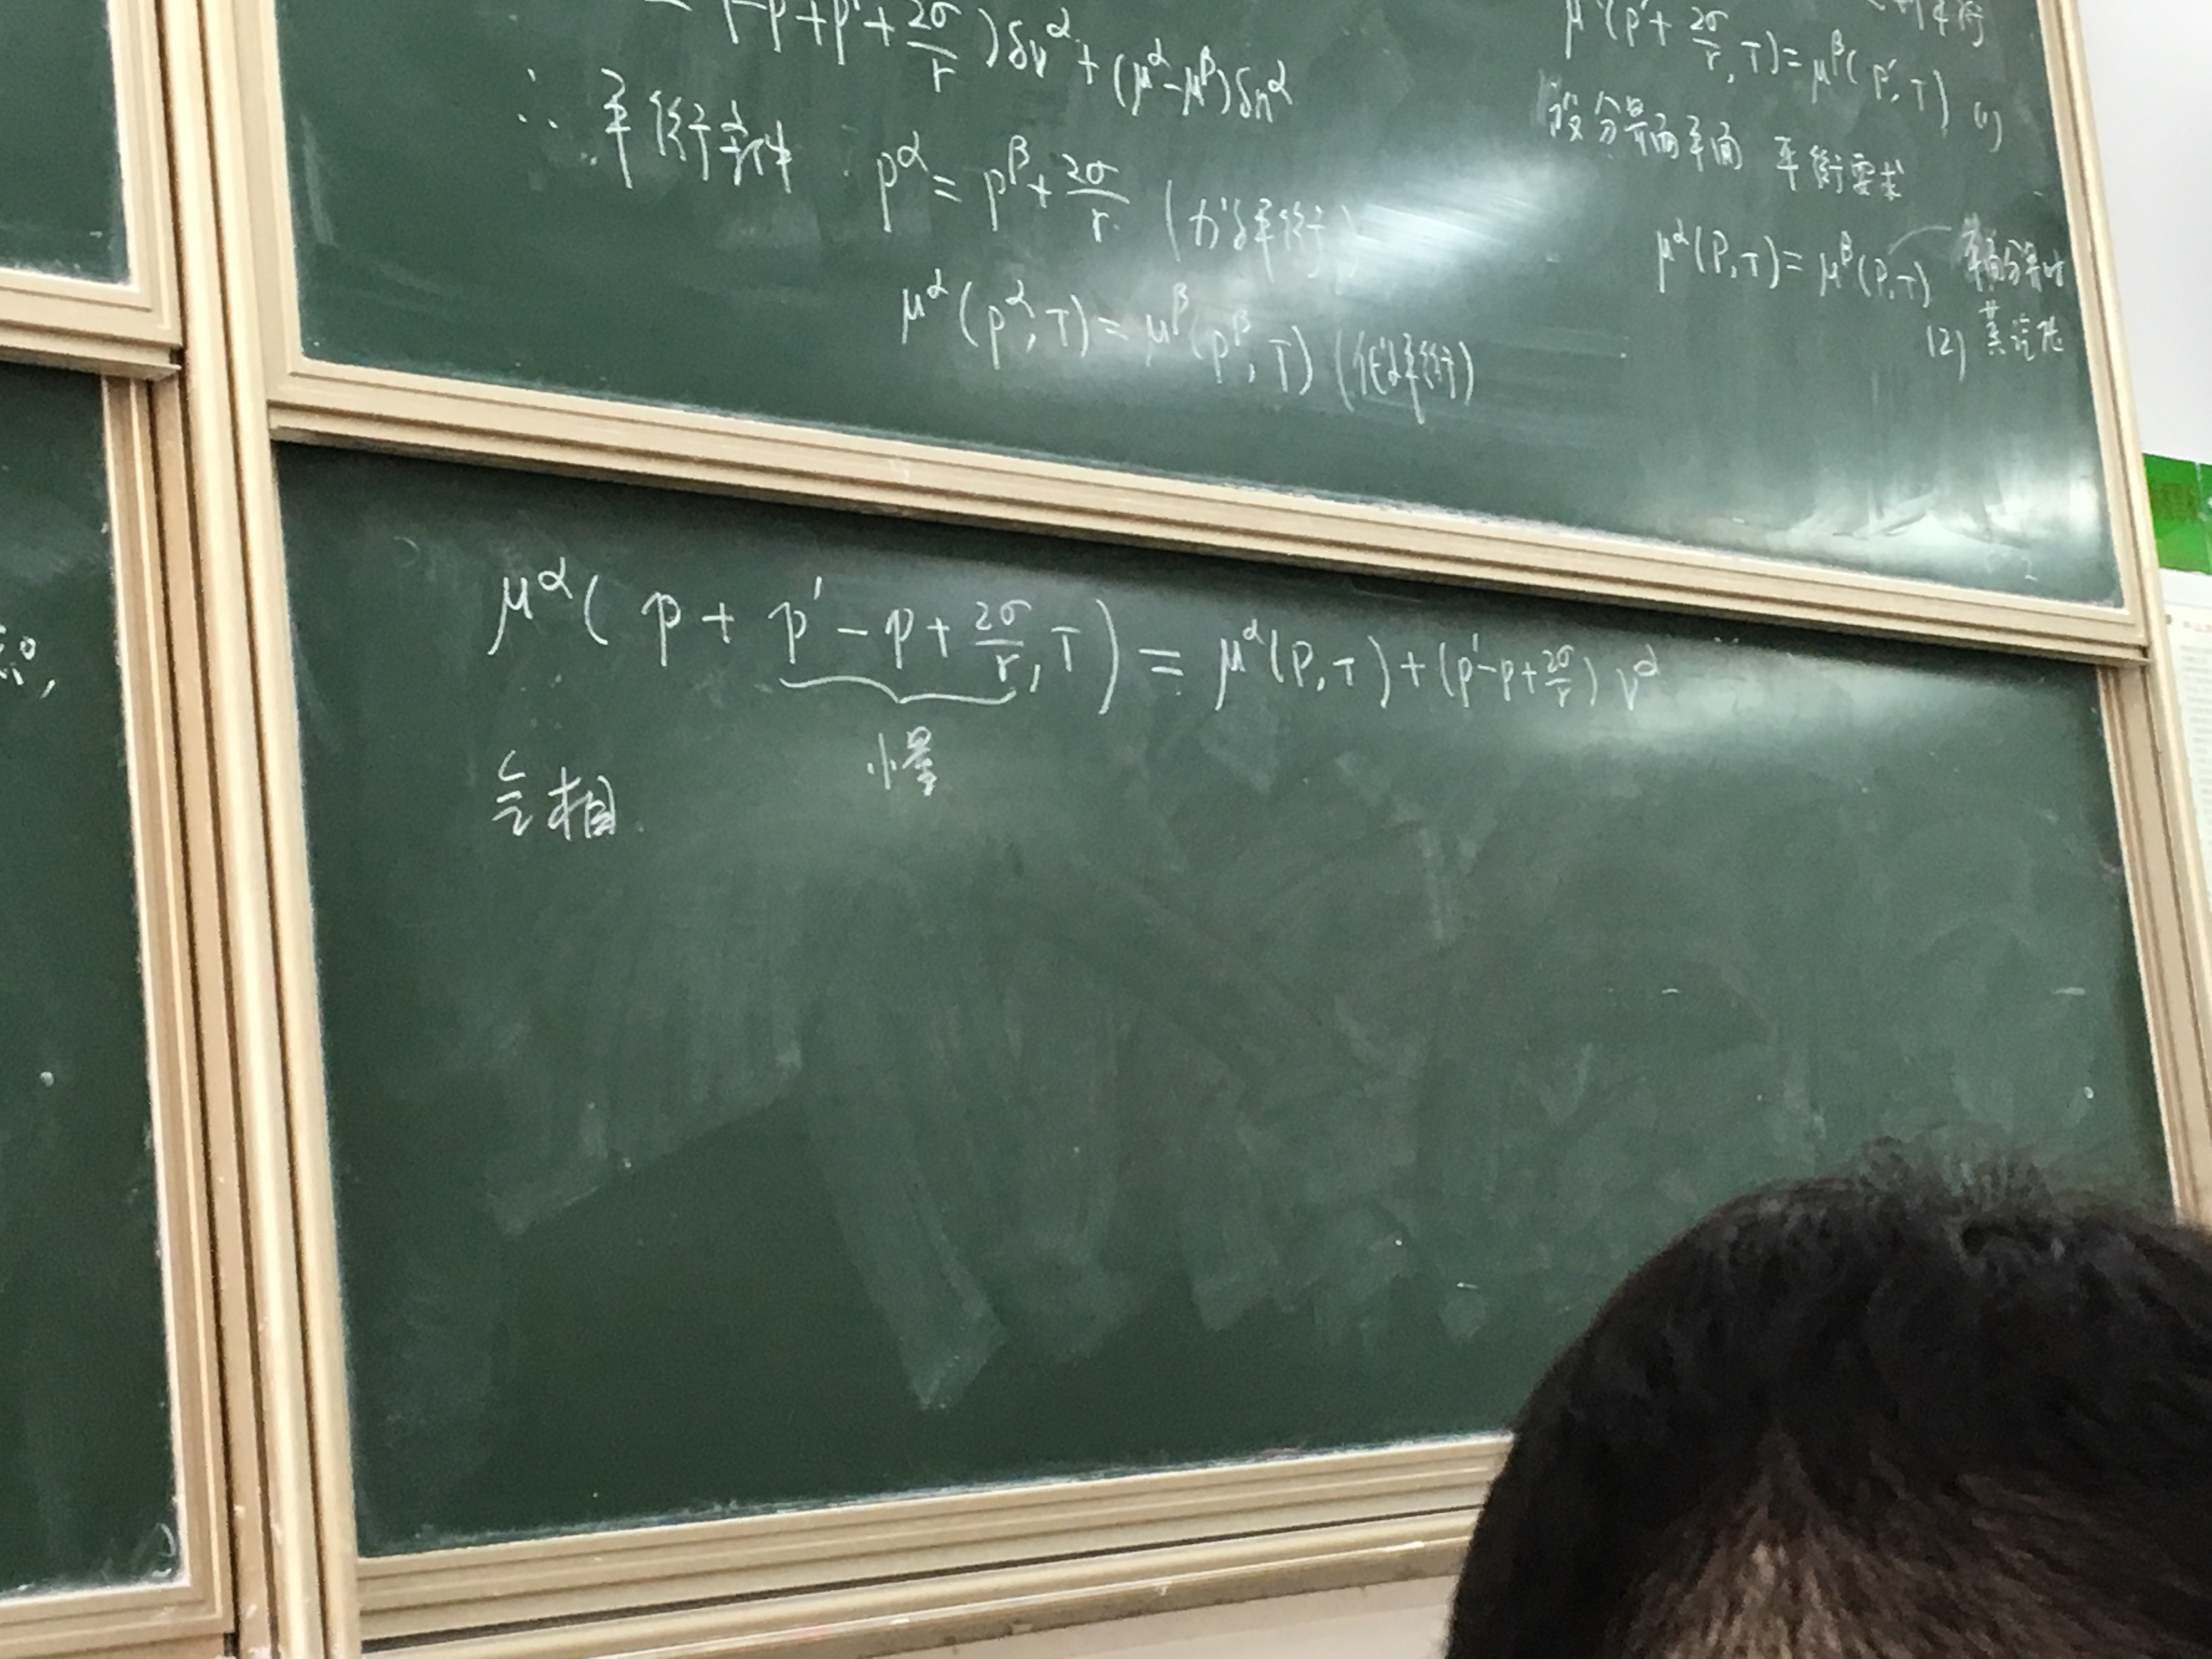 (-p+p'+\frac{2σ}{r})δv^α+(μ^α-μ^β)δn^α
∴ 平衡条件 p^α=p^β+\frac{2σ}{r} (力学平衡)
μ^α(p^α,T)=μ^β(p^β,T) (化学平衡)
μ^α(p'+\frac{2σ}{r},T)=μ^β(p',T) (1)
设分界面平面 平衡要求
μ^α(P,T)=μ^β(P,T) 平面分界时
(2) 蒸汽压
μ^α(p+p'-p+\frac{2σ}{r},T)=μ^α(P,T)+(p'-p+\frac{2σ}{r})v^α
小量
气相